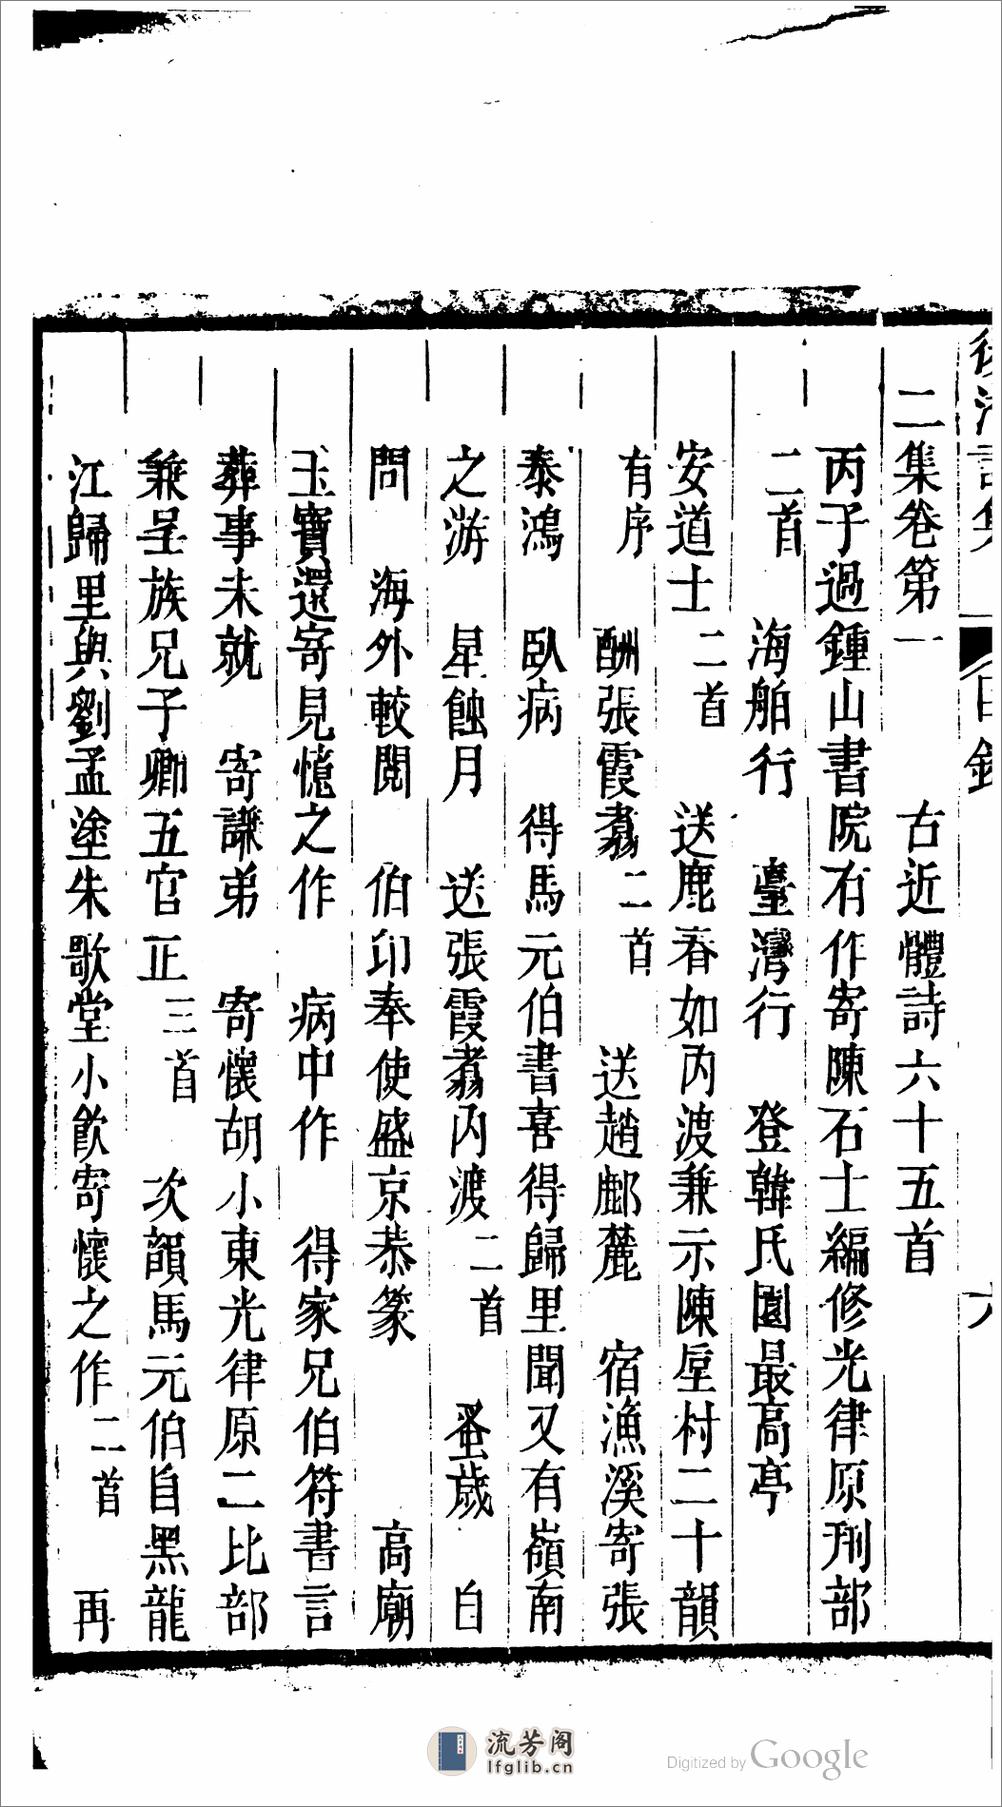 二集卷第一　古近體詩六十五首
丙子過鍾山書院有作寄陳石士編修光律原刑部
二首　海舶行　臺灣行　登韓氏園最高亭
安道士二首　送鹿春如丙渡兼示陳垕村二十韻
有序　酬張霞翥二首　送趙郕麓　宿漁溪寄張
泰鴻　臥病　得馬元伯書喜得歸里聞又有嶺南
之游　星蝕月　送張霞翥內渡二首　蚤歲　自
問　海外較閱　伯印奉使盛京恭篆　高廟
玉寶還寄見憶之作　病中作　得家兄伯符書言
葬事未就　寄謙弟　寄懷胡小東光律原二比部
兼呈族兄子卿五官正三首　次韻馬元伯自黑龍
江歸里與劉孟塗朱歌堂小飲寄懷之作二首　再
目錄
六
流芳阁
lfglib.cn
Digitized by Google